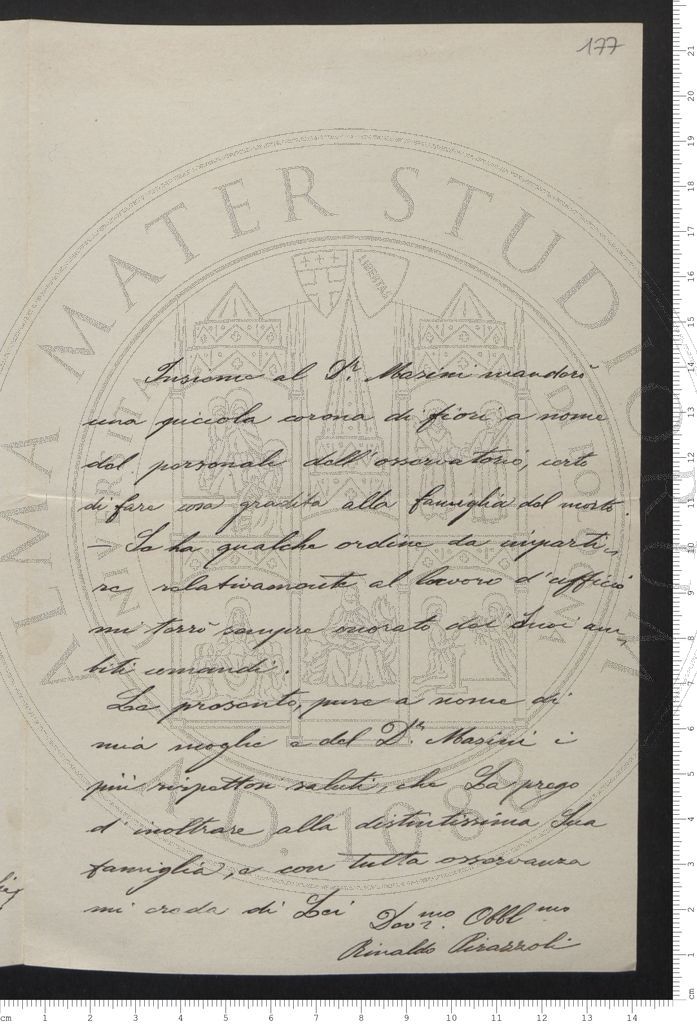 177
Insieme al D.r Masini manderò
una piccola corona di fiori a nome
del personale dell'osservatorio, certo
di fare cosa gradita alla famiglia del morto.
— Se ha qualche ordine da imparti-
re relativamente al lavoro d'ufficio
mi terrò sempre onorato dei Suoi am-
biti comandi.
Le presento, pure a nome di
mia moglie e del D.r Masini i
più rispettosi saluti, che La prego
d'inoltrare alla distintissima Sua
famiglia, e con tutta osservanza
mi creda di Lei
Dev.mo Obbl.mo
Rinaldo Pirazzoli
ALMA MATER STUDIORUM
A.D. 1088
LIBERTAS
cm 1 2 3 4 5 6 7 8 9 10 11 12 13 14
cm 1 2 3 4 5 6 7 8 9 10 11 12 13 14 15 16 17 18 19 20 21